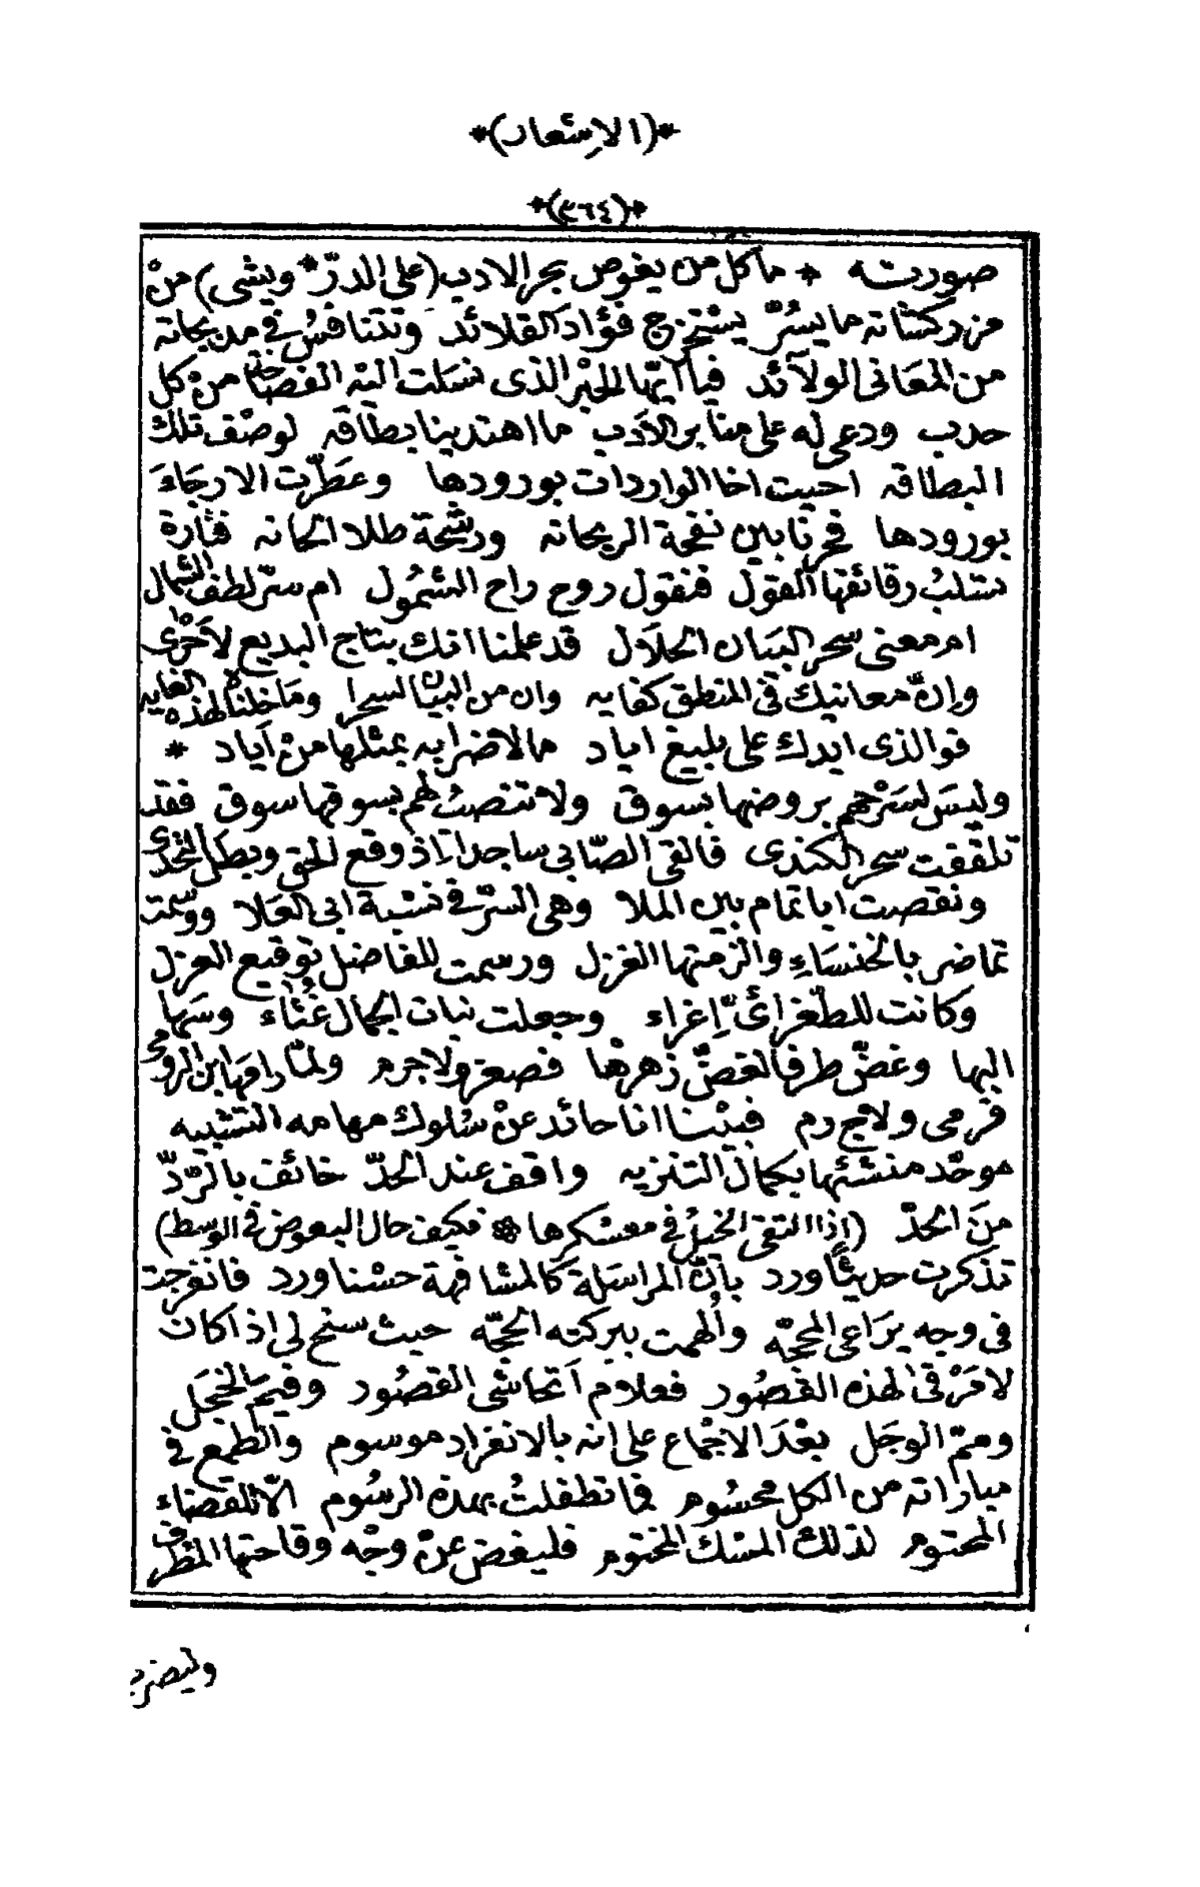 *(الاسٍعار)*
*(٣٦٤)*
صورته * ما كل من يغوص بحر الادب (على الدرّ * ويشى) منْ
من ما يسُرّ يستخرج فؤاد القلائد وتتنافسُ في
من المعَانى الولآئد فيا ايّها الحبْر الذى نسَلت اليْه الفصَاحة منْ كل
حدب ودعى له على منابر الأدَب ما اهتدينا بطاقه لوصْف تلك
البطاقه احيت اخا الواردات بورودها وعَطّرت الارجَاءَ
بورودها فحرنا بين نفحة الريحانه ورشْحة طلا الحانه فتارة
ستلبُ رقائقها العقول فنقول روح راح الشمُول ام سرّ لطف الشمال
ام معنى سحر البيَان الحلَال قد علمنا انك بتاج البديع لاَحْرى
وإنّ معانيك في المنطق كفايه وان من البيَان لسحرا وما خلنا لهذه الغايه
فوالذى ايدك على بليغ اياد ما لاضرابه بمثلها منْ آياد *
وليسَ لسَرْحهم بروضها بسوق ولا تنتصبُ لهم بسوقها سوق فقد
تلقّفت سحر الكندى فالقى الصّابى ساجدا إذ وقع الحق وبطل التحدى
ونقصت ابا تمام بين الملا وهى السّرّ في نسْبة ابى العَلا ووسمت
تماضر بالخنسَاءِ والزمتها الغزل ورسمت للفاضل توقيع العزل
وكانت للطّغرائىّ إغراء وجعلت نبات الجمال غُثاء وسَها
اليها وغضّ طرفا لغضّ زهرهَا فصغر ولا جرم ولمّا رامَها ابن الرومى
فرمى ولا مجرم فبيْنا انا حائد عنْ سُلوك مهامه التشبيه
موحّد منشئها بكمال التنزيه واقف عند الحدّ خائف بالرّدّ
منَ الحدّ (إذا التقى الخيلُ في معسْكرها * فكيف حال البعوض في الوسط)
تذكرت حديثًا ورد بأنّ المراسَلة كالمشافهة حسْنا ورد فانفرجت
فى وجه يرَاعى المحجّه وأُلهمت ببركته الحجّه حيث سنح لى إذ كان
لا مَرْقى لهذه القصُور فعلام أتحاشى القصُور وفيمَ الخجَل
وممّ الوجَل بعْدَ الاجْماع على انه بالانفراد موسوم والطمع في
مباراته من الكل محسُوم فما تطفلتُ بهذه الرسُوم الّا للقضاء
المحتوم لذلك المسْك المختوم فليغض عنْ وجْه وقاحتها الطرف
وليضرب